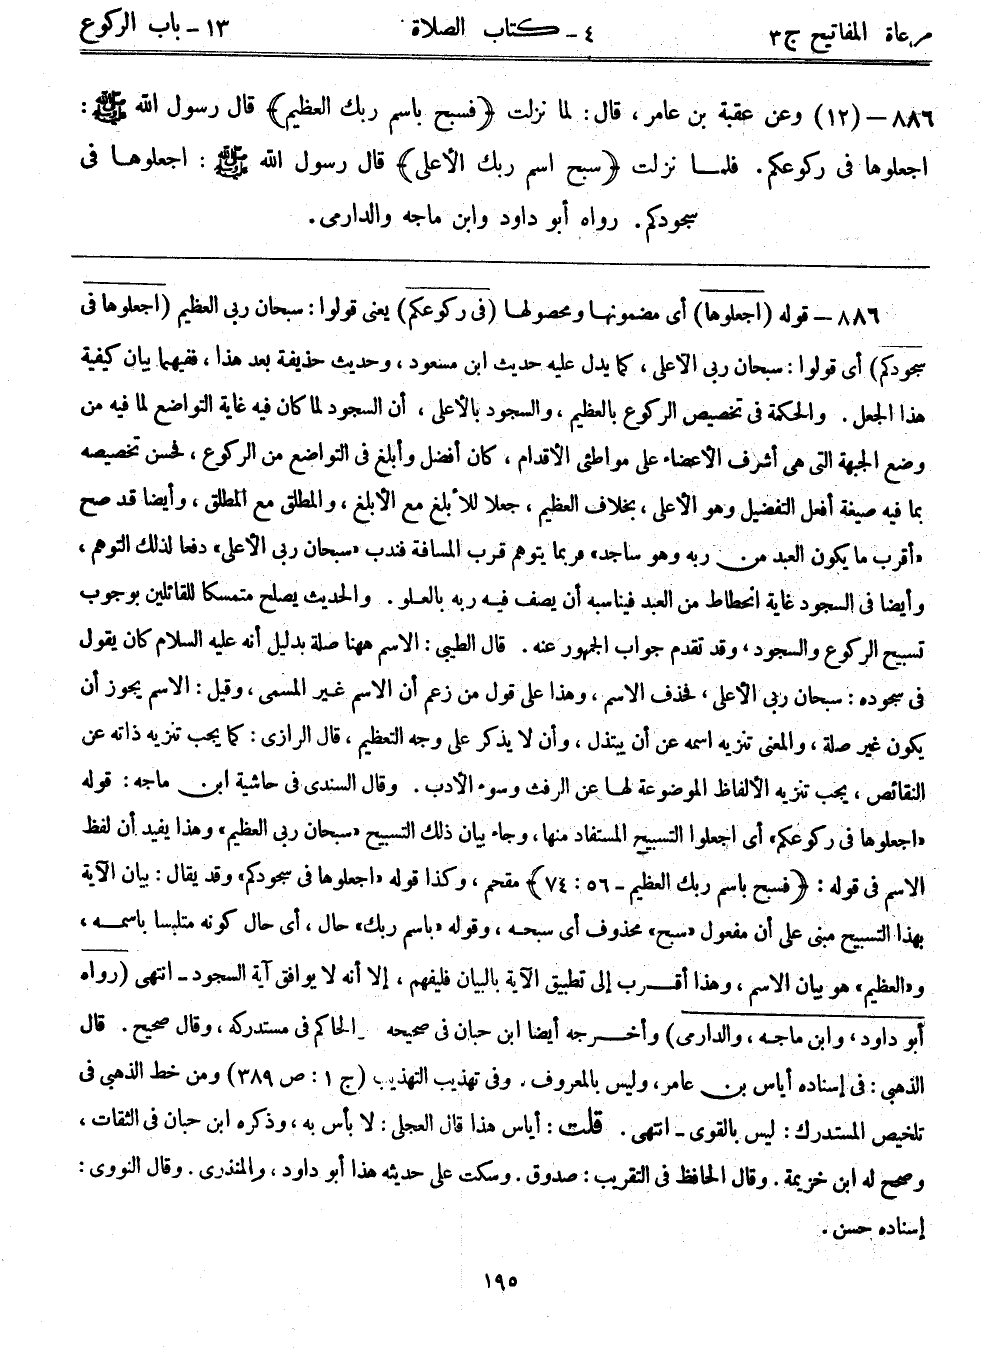 مرعاة المفاتيح ج ٣ ٤ - كتاب الصلاة ١٣ - باب الركوع
٨٨٦ - (١٢) وعن عقبة بن عامر، قال: لما نزلت ﴿فسبح باسم ربك العظيم﴾ قال رسول الله ﷺ :
اجعلوها فى ركوعكم. فلمـا نزلت ﴿سبح اسم ربك الأعلى﴾ قال رسول الله ﷺ : اجعلوهـا فى
سجودكم. رواه أبو داود وابن ماجه والدارمى.
٨٨٦ - قوله (اجعلوها) أى مضمونهـا ومحصولهـا (فى ركوعكم) يعنى قولوا: سبحان ربى العظيم (اجعلوها فى
سجودكم) أى قولوا: سبحان ربى الأعلى، كما يدل عليه حديث ابن مسعود، وحديث حذيفة بعد هذا، ففيهما بيان كيفية
هذا الجعل. والحكمة فى تخصيص الركوع بالعظيم، والسجود بالأعلى، أن السجود لما كان فيه غاية التواضع لما فيه من
وضع الجبهة التى هى أشرف الأعضاء على مواطئى الأقدام، كان أفضل وأبلغ فى التواضع من الركوع، فحسن تخصيصه
بما فيه صيغة أفعل التفضيل وهو الأعلى، بخلاف العظيم، جعلا للأبلغ مع الأبلغ، والمطلق مع المطلق، وأيضا قد صح
«أقرب ما يكون العبد من ربه وهو ساجد» فربما يتوهم قرب المسافة فندب «سبحان ربى الأعلى» دفعا لذلك التوهم،
وأيضا فى السجود غاية انحطاط من العبد فيناسبه أن يصف فيـه ربه بالعـلو. والحديث يصلح متمسكا للقائلين بوجوب
تسبيح الركوع والسجود، وقد تقدم جواب الجمهور عنه. قال الطيبى: الاسم ههنا صلة بدليل أنه عليه السلام كان يقول
فى سجوده: سبحان ربى الأعلى، فحذف الاسم، وهذا على قول من زعم أن الاسم غـير المسمى، وقيل: الاسم يجوز أن
يكون غير صلة، والمعنى تنزيه اسمه عن أن يبتذل، وأن لا يذكر على وجه التعظيم، قال الرازى: كما يجب تنزيه ذاته عن
النقائص، يجب تنزيه الألفاظ الموضوعة لهـا عن الرفث وسوء الأدب. وقال السندى فى حاشية ابن ماجه: قوله
«اجعلوها فى ركوعكم» أى اجعلوا التسبيح المستفاد منها، وجاء بيان ذلك التسبيح «سبحان ربى العظيم» وهذا يفيد أن لفظ
الاسم فى قوله: ﴿فسبح باسم ربك العظيم - ٥٦: ٧٤﴾ مقحم، وكذا قوله «اجعلوها فى سجودكم» وقد يقال: بيان الآية
بهذا التسبيح مبنى على أن مفعول «سبح» محذوف أى سبحـه، وقوله «باسم ربك» حال، أى حال كونه متلبسا باسمـه،
و«العظيم» هو بيان الاسم، وهذا أقـرب إلى تطبيق الآية بالبيان فليفهم، إلا أنه لا يوافق آية السجود - انتهى (رواه
أبو داود، وابن ماجـه، والدارمى) وأخـرجه أيضا ابن حبان فى صحيحه الحاكم فى مستدركه، وقال صحيح. قال
الذهبى: فى إسناده أياس بن عامر، وليس بالمعروف. وفى تهذيب التهذيب (ج ١: ص ٣٨٩) ومن خط الذهبى فى
تلخيص المستدرك: ليس بالقوى - انتهى. قلت: أياس هذا قال العجلى: لا بأس به، وذكره ابن حبان فى الثقات،
وصحح له ابن خزيمة. وقال الحافظ فى التقريب: صدوق. وسكت على حديثه هذا أبو داود، والمنذرى. وقال النووى:
إسناده حسن.
١٩٥